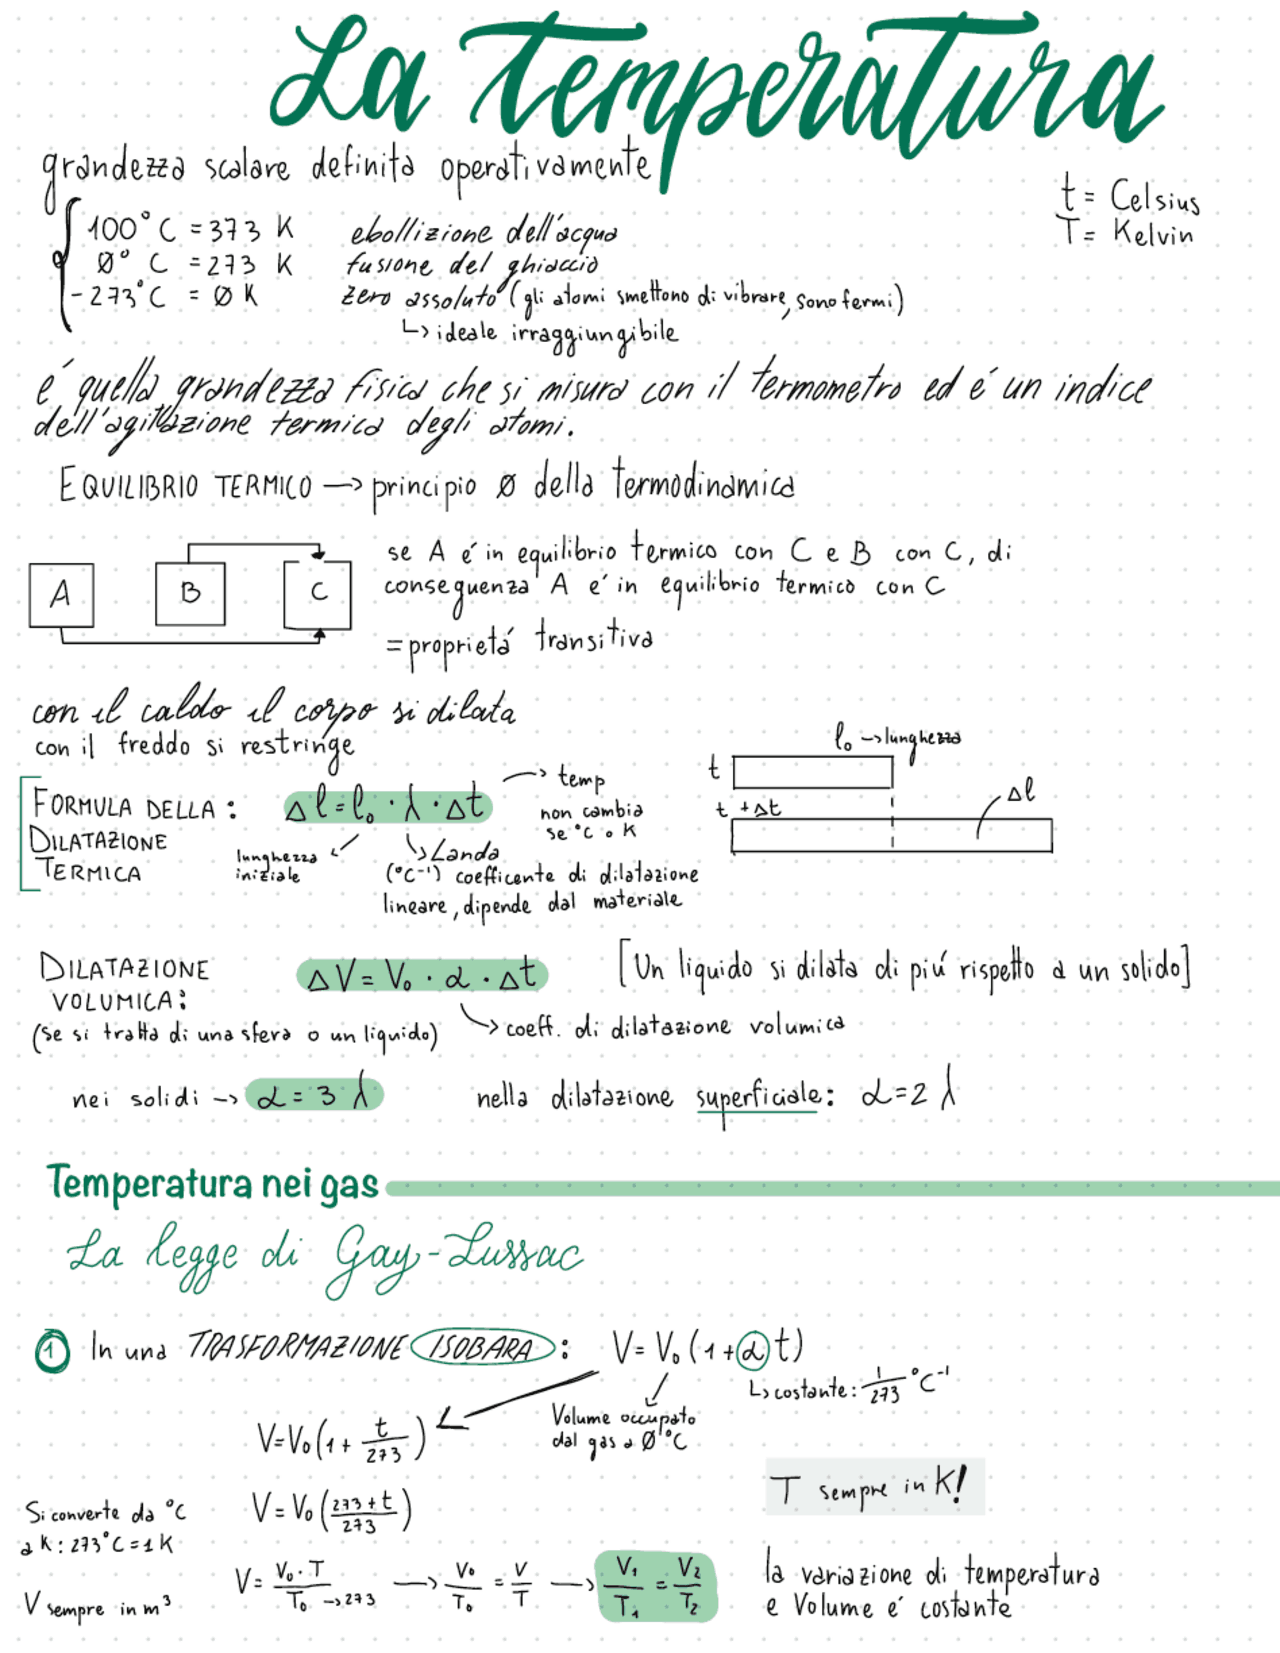 La temperatura
grandezza scalare definita operativamente
t = Celsius
T = Kelvin
100° C = 373 K ebollizione dell'acqua
0° C = 273 K fusione del ghiaccio
-273°C = 0 K zero assoluto (gli atomi smettono di vibrare, sono fermi)
↳ ideale irraggiungibile
é quella grandezza fisica che si misura con il termometro ed é un indice
dell'agitazione termica degli atomi.
EQUILIBRIO TERMICO → principio 0 della termodinamica
A B C
se A é in equilibrio termico con C e B con C, di
conseguenza A é in equilibrio termico con C
= proprietá transitiva
con il caldo il corpo si dilata
con il freddo si restringe
l₀ → lunghezza
t
t + Δt
Δl
FORMULA DELLA :
DILATAZIONE
TERMICA
Δl = l₀ · λ · Δt
→ temp
non cambia
se °C o K
lunghezza
iniziale
↳ Landa
(°C⁻¹) coefficente di dilatazione
lineare, dipende dal materiale
DILATAZIONE
VOLUMICA:
(se si tratta di una sfera o un liquido)
ΔV = V₀ · α · Δt
[Un liquido si dilata di piú rispetto a un solido]
↳ coeff. di dilatazione volumica
nei solidi → α = 3 λ nella dilatazione superficiale: α = 2 λ
Temperatura nei gas
La legge di Gay-Lussac
1 In una TRASFORMAZIONE ISOBARA : V = V₀ (1 + α t)
↳ costante: 1/273 °C⁻¹
Volume occupato
dal gas a 0°C
V = V₀ (1 + t/273)
T sempre in K!
Si converte da °C
a K : 273°C = 1 K
V = V₀ (273 + t/273)
V sempre in m³
V = V₀ · T/T₀ → 273 → V₀/T₀ = V/T → V₁/T₁ = V₂/T₂
la variazione di temperatura
e Volume é costante